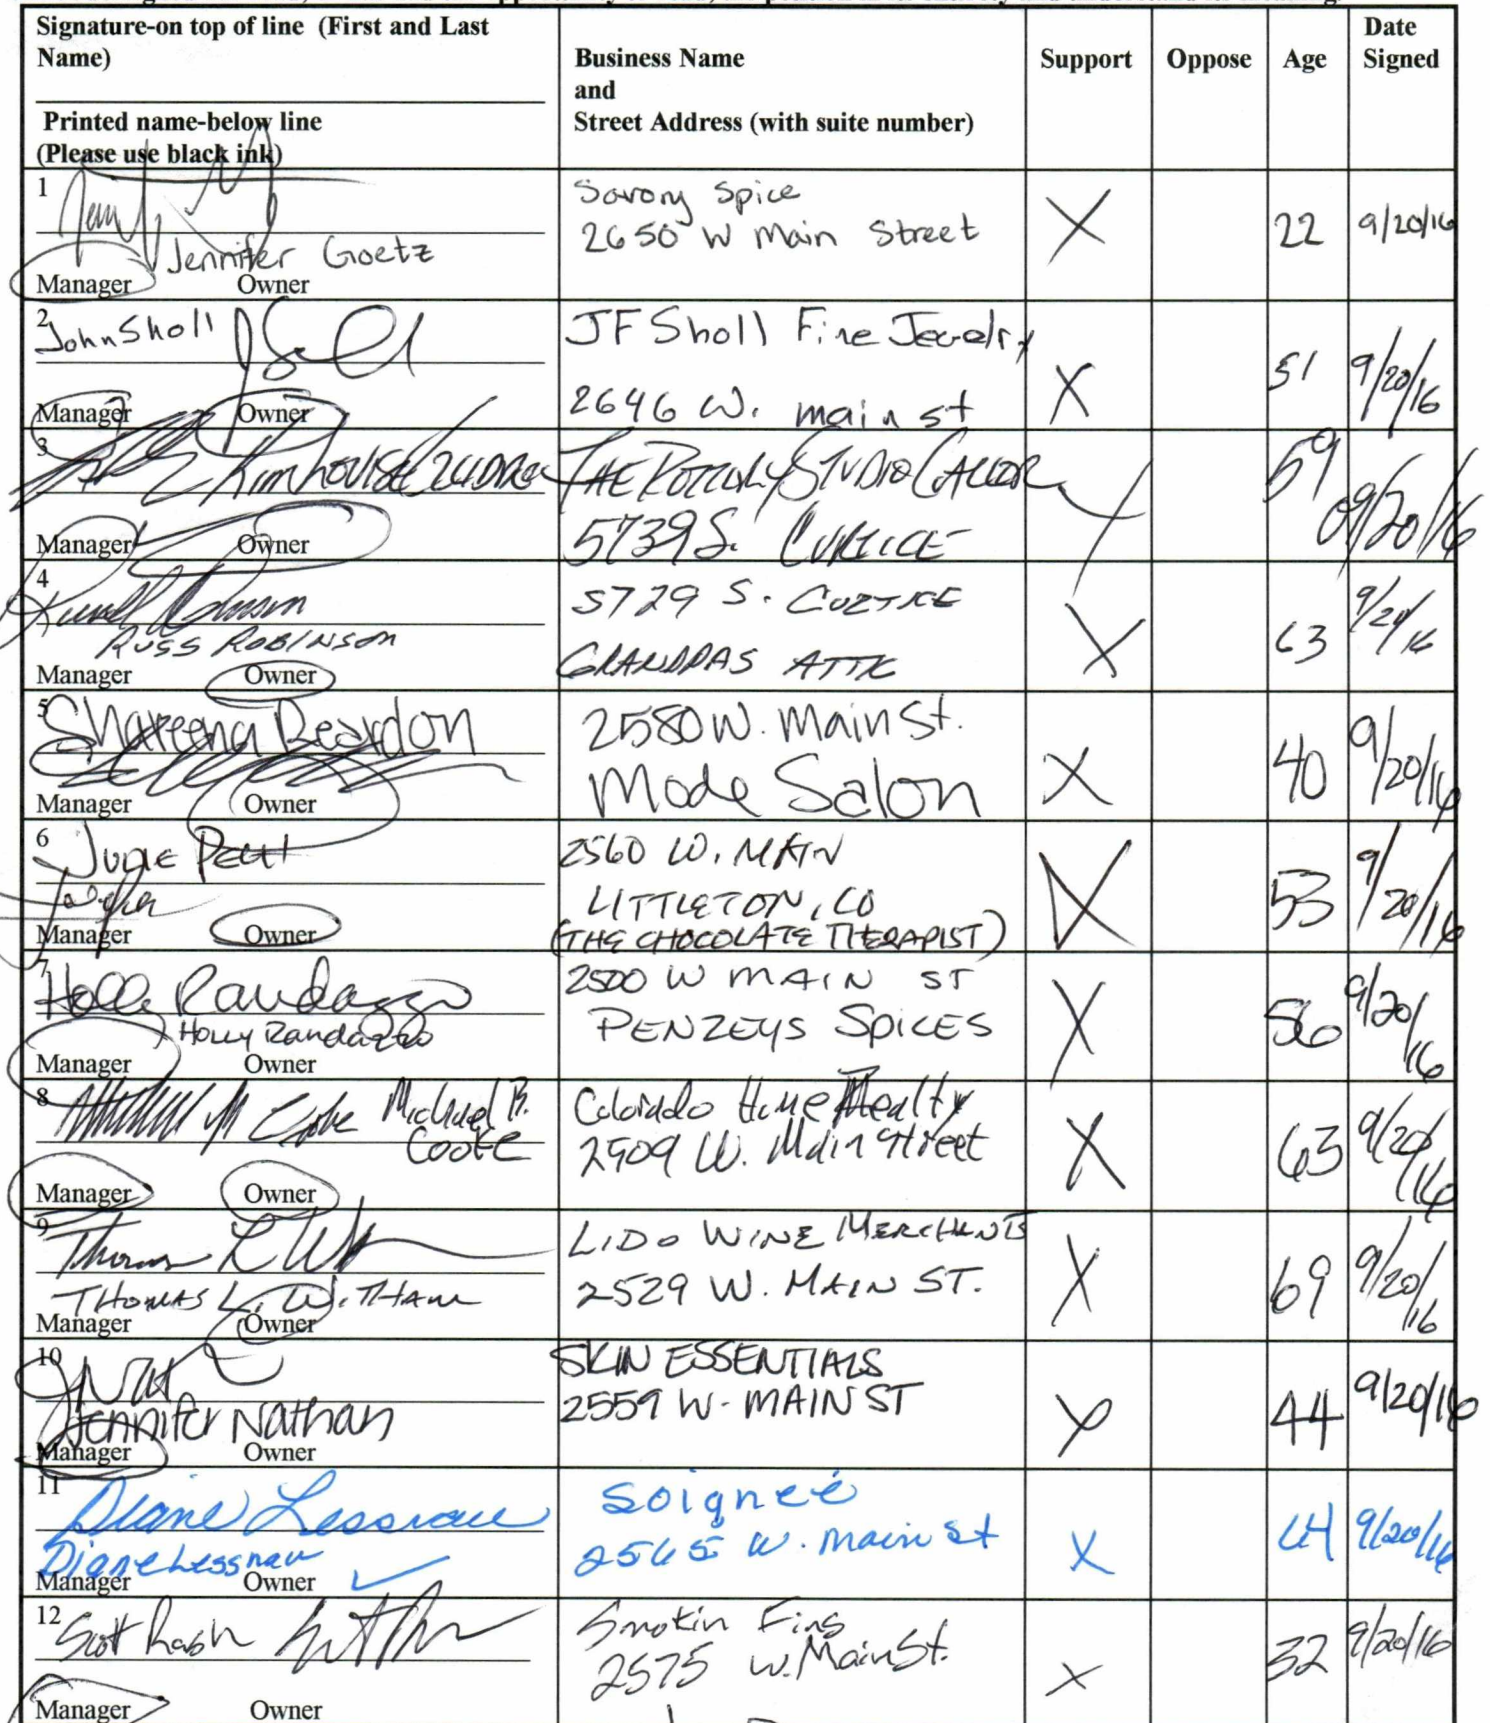 Signature-on top of line (First and Last
Name)
Printed name-below line
(Please use black ink)
Business Name
and
Street Address (with suite number)
Support
Oppose
Age
Date
Signed
1
Jennifer Goetz
Manager Owner
Savory Spice
2650 W Main Street
X
22
9/20/16
2
John Sholl
Manager Owner
JF Sholl Fine Jewelry
2646 W. main st
X
51
9/20/16
3
Manager Owner
THE POTTERY STUDIO
5739 S. CURTICE
X
59
09/20/16
4
RUSS ROBINSON
Manager Owner
5729 S. CURTICE
GRANDPAS ATTIC
X
63
9/20/16
5
Shareena Reardon
Manager Owner
2580 W. Main St.
Mode Salon
X
40
9/20/16
6
JULIE PECH
Manager Owner
2560 W. MAIN
LITTLETON, CO
(THE CHOCOLATE THERAPIST)
X
53
9/20/16
7
Holly Randazzo
Holly Randazzo
Manager Owner
2500 W MAIN ST
PENZEYS SPICES
X
56
9/20/16
8
Michael B.
Cooke
Manager Owner
Colorado Home Realty
2509 W. Main Street
X
63
9/20/16
9
THOMAS L. WITHAM
Manager Owner
LIDO WINE MERCHANTS
2529 W. MAIN ST.
X
69
9/20/16
10
Jennifer Nathan
Manager Owner
SKIN ESSENTIALS
2559 W. MAIN ST
X
44
9/20/16
11
Diane Lessnau
Diane Lessnau
Manager Owner ✓
Soigneé
2565 W. Main St
X
64
9/20/16
12
Scott Rash
Manager Owner
Smokin Fins
2575 W. Main St.
X
32
9/20/16